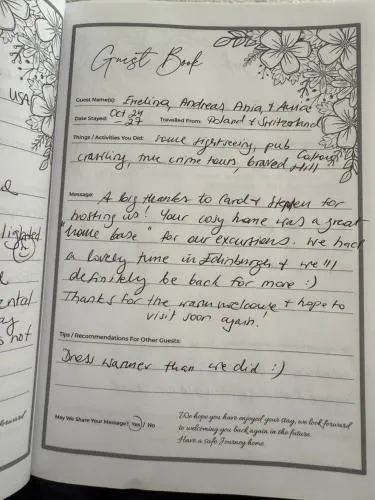 USA
lighted
ental
ay
s not
forward
Guest Book
Guest Name(s): Emelina, Andreas, Ania & Ania
Date Stayed: Oct 24 - 27 Travelled From: Poland & Switzerland
Things / Activities You Did: some sightseeing, pub
crawling, true crime tours, braved Calton Hill
Message: A big thanks to Carol & Stephen for
hosting us! Your cosy home was a great
"home base" for our excursions. We had
a lovely time in Edinburgh & we'll
definitely be back for more :)
Thanks for the warm welcome & hope to
visit soon again!
Tips / Recommendations For Other Guests:
Dress warmer than we did :)
May We Share Your Message? Yes / No
We hope you have enjoyed your stay, we look forward
to welcoming you back again in the future.
Have a safe Journey home.